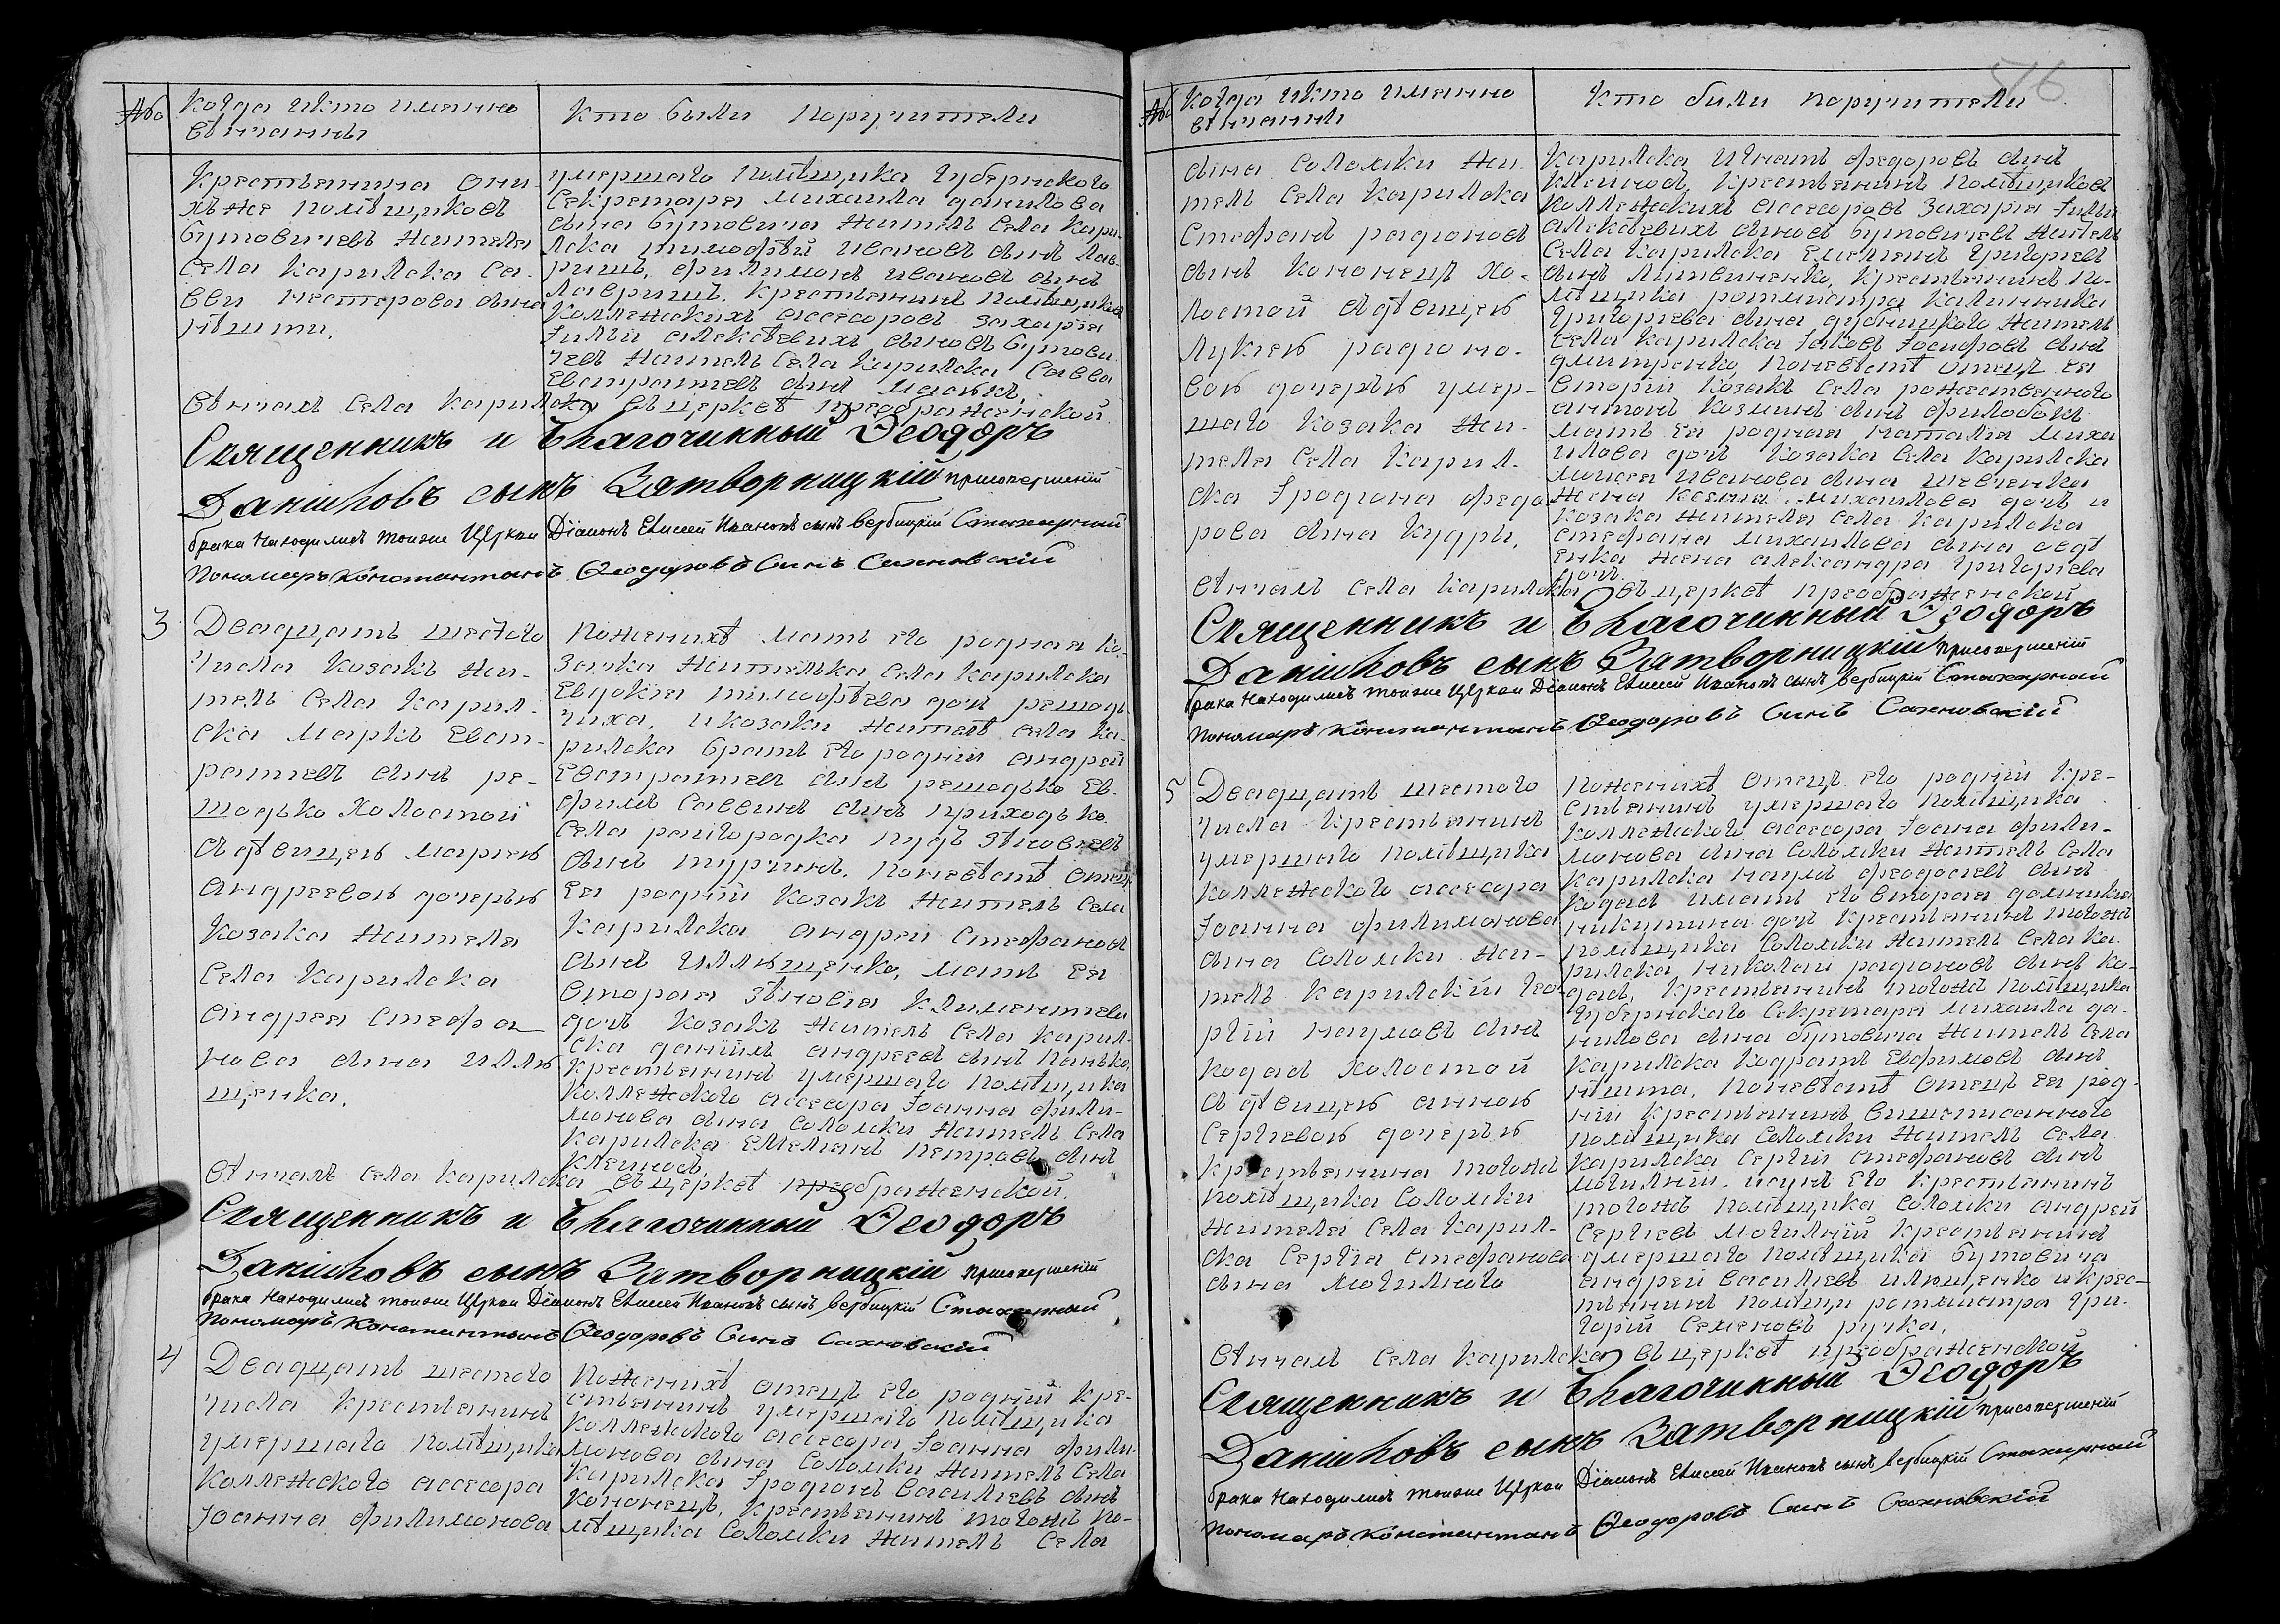 №
Когда икто имянно
вѣнчанны
Кто были Поручители
Крестьянина они-
хъже помѣщиковъ
Бутовичевъ жителя
Села Карилска Са-
ввы Нестерова сына
умершаго Помѣщика Губернского
Секретаря Михаила Данилова
сына Бутовича житель Села Кари-
лска Тимофѣй Ивановъ сынъ Лав-
ришъ, Филимонъ Ивановъ сынъ
Лавришъ, Крестьянинъ Помѣщиковъ
Коллежскихъ ассесоровъ Захарія
Іилыи алексѣевихъ сыновъ Бутови-
чевъ житель Села Карилска Савва
Евстратіевъ сынъ
вѣнчалъ Села Карилска въ церквѣ преображенской.
Священникъ и Благочинный Ѳеодоръ
Даниловъ сынъ Затворницкій присовершеніи
брака Находились тоиже Церкви Діаконъ Елисей Ивановъ сынъ Вербицкій Стихарный
Пономаръ Константинъ Ѳеодоровъ Синъ Сахновскій
3
Двадцать шестого
числа Козакъ жи-
тель Села Карил-
ска Марко Евст-
ратіевъ сынъ Ре-
шодько Холостой
сдѣвицею Мариею
Андреевою дочерью
Козака жителя
Села Карилска
Андрея Стефа-
нова сына Иллю-
щенка.
Поженихѣ мать его родная ко-
зачка жителька Села Карилска
Евдокія Тимофѣева дочь Решодь-
чиха, и козаки жителѣ села Ка-
рилска братъ его родній андрей
Евстратіевъ сынъ решодько Ев-
фимъ Саввинъ сынъ Приходько.
Села райгородка Нудъ Зѣновіевъ
сынъ Туринъ. Поневѣстѣ отецъ
Ея родній Козакъ житель Села
Карилска андрей Стефановъ
сынъ Иллющенко, мать ея
вторая Зѣновія Климентіева
дочь Козакъ житель Села Карил-
ска даніилъ андреевъ сынъ Панько,
Крестьянинъ умершаго помѣщика
Коллежского ассесора Іоанна Фили-
монова сына Соломки житель Села
Карилска Емелянъ Петровъ сынъ
Клейновъ.
вѣнчалъ села Карилска въ церквѣ преображенской.
Священникъ и Благочинный Ѳеодоръ
Даниловъ сынъ Затворницкій присовершеніи
брака Находились тоиже Церкви Діаконъ Елисей Ивановъ сынъ Вербицкій Стихарный
Пономаръ Константинъ Ѳеодоровъ Синъ Сахновскій
4
Двадцать шестого
числа Крестьянинъ
умершаго помѣщика
Коллежского ассесора
Іоанна Филимонова
Поженихѣ отецъ его родній Кре-
стьянинъ умершаго помѣщика
Коллежского ассесора Іоанна Фили-
монова сына Соломки житель Села
Карилска Іродионъ Василіевъ сынъ
Кононецъ, Крестьянинъ тогожъ по-
мѣщика Соломки житель Села
516
№
Когда икто имянно
вѣнчанни
Кто били поручители
сына Соломки жи-
тель Села Карилска
Стефанъ радионовъ
сынъ Кононецъ Хо-
лостой сдѣвицею
Лукіею радионо-
вою дочерью умер-
шаго Козака жи-
теля Села Карил-
ска Іродиона Федо-
рова сына Кудри.
Карилска Игнатъ Федоровъ сынъ
Клейновъ, Крестьянинъ Помѣщиковъ
Коллежскихъ ассесоровъ Захарія Іилыи
алексѣевихъ сыновъ Бутовичевъ житель
Села Карилска Емелянъ Григоріевъ
сынъ Литвиненко, Крестьянинъ По-
мѣщика ротмистра Калинника
Григоріева сына дубницкого житель
Села Карилска Іаковъ Іосифовъ сынъ
дмитренко, Поневѣстѣ отецъ ея
вторій Козакъ Села рожественного
антонъ Козминъ сынъ Филобокъ
мать Ея родная Наталія Миха-
илова дочь Козака Села Карилска
Моисея Иванова сына Шевченка
жена Ксенія Михаилова дочь и
Козака жителя Села Карилска
Стефана Михаилова сына
жена александра Григоріева
дочь.
вѣнчалъ Села Карилска въ церквѣ преображенской
Священникъ и Благочинный Ѳеодоръ
Даниловъ сынъ Затворницкій присовершеніи
брака Находились тоиже Церкви Діаконъ Елисей Ивановъ сынъ Вербицкій Стихарный
Пономаръ Константинъ Ѳеодоровъ Синъ Сахновскій
5
Двадцать шестого
числа Крестьянинъ
умершаго помѣщика
Коллежского ассесора
Іоанна Филимонова
сына Соломки жи-
тель Карилскій Гео-
ргій Наумовъ сынъ
Кодакъ Холостой
сдѣвицею Анною
Сергіевою дочерью
Крестьянина тогожъ
Помѣщика Соломки
жителя Села Карил-
ска Сергія Стефанова
сына Могилного
Поженихѣ отецъ его родній Кре-
стьянинъ умершаго помѣщика
Коллежского ассесора Іоана Фили-
монова сына Соломки житель Села
Карилска Наумъ Феодосіевъ сынъ
Кодакъ имать его вторая доминикія
никитина дочь Крестьянинъ тогожъ
помѣщика Соломки житель Села Ка-
рилска, николай радионовъ сынъ Ко-
дакъ, Крестьянинъ тогожъ помѣщика
Губернского Секретаря Михаила да-
нилова сына Бутовича житель Села
Карилска Кодратъ Евфимовъ сынъ
Поневѣстѣ отецъ ея род-
ній Крестьянинъ вишеписанного
помѣщика Соломки житель Села
Карилска Сергій Стефановъ сынъ
Могилній, Крестьянинъ
тогожъ помѣщика Соломки андрей
Сергіевъ Могилній Крестьянинъ
умершаго помѣщика Бутовича
андрей Василіевъ Илющенко икрес-
тянинъ помѣщи ротмистра Гри-
горій Семеновъ ручка.
вѣнчалъ Села Карилска въ церквѣ преображенской
Священникъ и Благочинный Ѳеодоръ
Даниловъ сынъ Затворницкій присовершеніи
брака Находились тоиже Церкви Діаконъ Елисей Ивановъ сынъ Вербицкій Стихарный
Пономаръ Константинъ Ѳеодоровъ Синъ Сахновскій